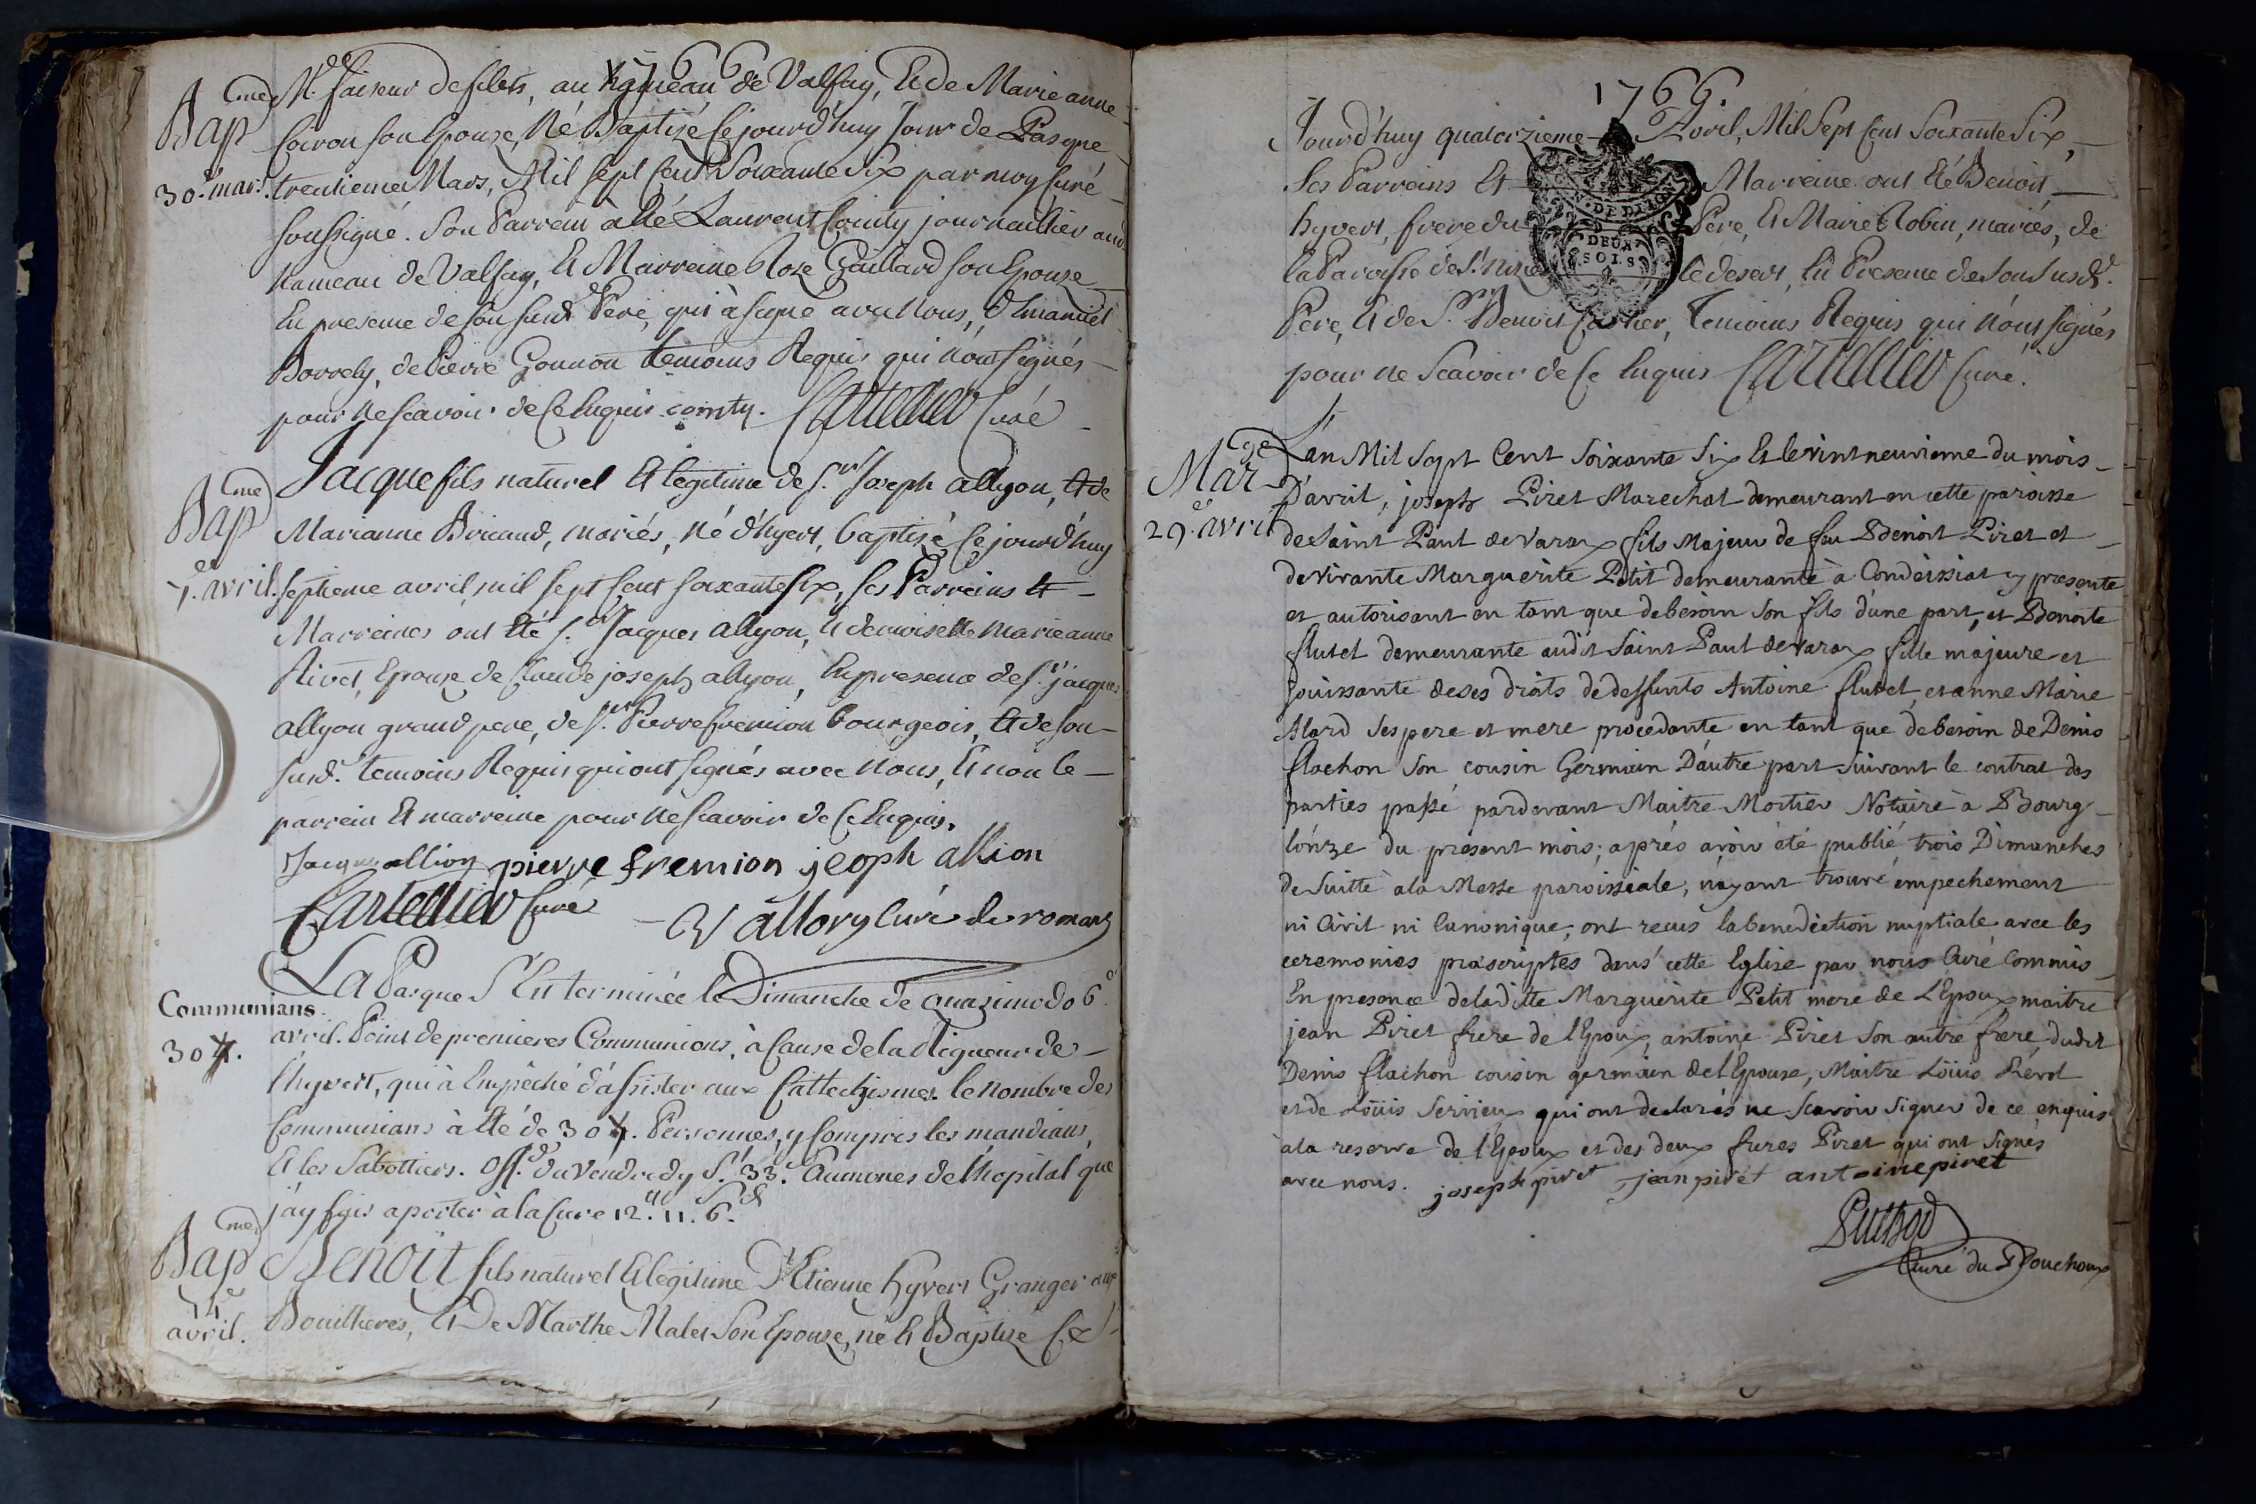 1766
Bap^me M^d faiseur de filets, au hameau de Valfay, Et de Marie anne
Coiron son Epouse, Né Baptizé Ce jourd'huy Jour de Pasque
30^e mars. trentieme Mars, Mil sept Cent Soixante Six par moy Curé
soussigné. Son Parrein à été Laurent Cointy journaillier aud
hameau de Valfay, Et Marreine Roze Gaillard son Epouse
En presence de son susd^t Père, qui à signé avec Nous, d'Emanuel
Borrely, de Pierre Gounon temoins Requis qui n'ont signés
pour ne scavoir de Ce Enquis. cointy. Cartellier Curé
Bap^me Jacque fils naturel Et legitime de S^r Joseph allyon, Et de
Marianne Bricaud, mariés, né d'hyert, baptisé Ce jourd'huy
7^e avril. septieme avril, mil sept Cent soixante six, ses Parreins Et
Marreines ont été S^r Jacques allyon, Et demoiselle Marie anne
Rivet, Epouse de Claude joseph allyon, En presence de S^r jacques
allyon grand pere, de S^r Pierre fremion bourgeois, Et de son
susd^t temoins Requis qui ont signés avec Nous, Et non le
parrein Et marreine pour ne scavoir de Ce Enquis.
Jacque allion pierre fremion jeoph allion
Cartellier Curé
Vallory Curé de romans
La Pasque S'En terminée le Dimanche de quazimodo 6^e
Communians avril. Point de premieres Communions, à Cause de la Rigueur de
304. l'hyvert, qui à Empêché d'assister aux Cattechismes. le Nombre des
Communians à été de 304. Personnes, y Compris les mandians,
Et les Sabottiers. Off^de du Vendredy S^t 33^s Aumones de l'hopital que
j'ay fais aporter à la Cure 12^tt. 11^s. 6^d.
Bap^me Benoit fils naturel Et legitime d'Etienne hyvert Granger aux
14^e avril. Bouillieres, Et De Marthe Malet Son Epouse, né Et Baptizé Ce
1766.
Jourd'huy quatorzieme Avril, Mil Sept Cent Soixante Six,
Ses Parreins Et Marreine ont été Benoit
hyvert, frere du Père, Et Marie Robin, mariés, de
DEUX
SOLS
la Paroisse de S^t le desert, En Presence de son susd^t
Père, Et de S^r Benoit Temoins Requis qui n'ont signés
pour ne Scavoir de Ce Enquis Cartellier Curé.
Mar^ge L'an Mil Sept Cent Soixante Six Et le vint neuvieme du mois
29^e avril D'avril, joseph Piret Marechal demeurant en cette paroisse
de Saint Paul de Varax fils Majeur de feu Benoit Piret et
de vivante Marguerite Petit demeurante à Condeissiat y presente
et autorisant en tant que de besoin son fils d'une part, et Benoite
flutet demeurante audit Saint Paul de Varax fille majeure et
jouissante de ses droits de deffunts Antoine flutet, et anne Marie
Alard ses pere et mere procedante en tant que de besoin de Denis
flachon son cousin Germain D'autre part suivant le contrat des
parties passé pardevant Maitre Mortier Notaire à Bourg
l'onze du present mois; aprés avoir été publié trois Dimanches
de Suitte à la Messe paroissiale, nayant trouvé empechement
ni Civil ni Canonique, ont recus la benediction nuptiale avec les
ceremonies prescriptes dans cette Eglise par nous Curé Commis
En presence de laditte Marguerite Petit mere de L'Epoux maitre
jean Piret frere de l'Epoux, antoine Piret son autre frere dudit
Denis flachon cousin germain de l'Epouse, Maitre Loüis
et de Loüis Servieux qui ont declarés ne scavoir signer de ce enquis
à la reserve de l'Epoux et des deux freres Piret qui ont signés
avec nous. joseph piret jean piret antoine piret
Puthod
Curé du Plouchoux